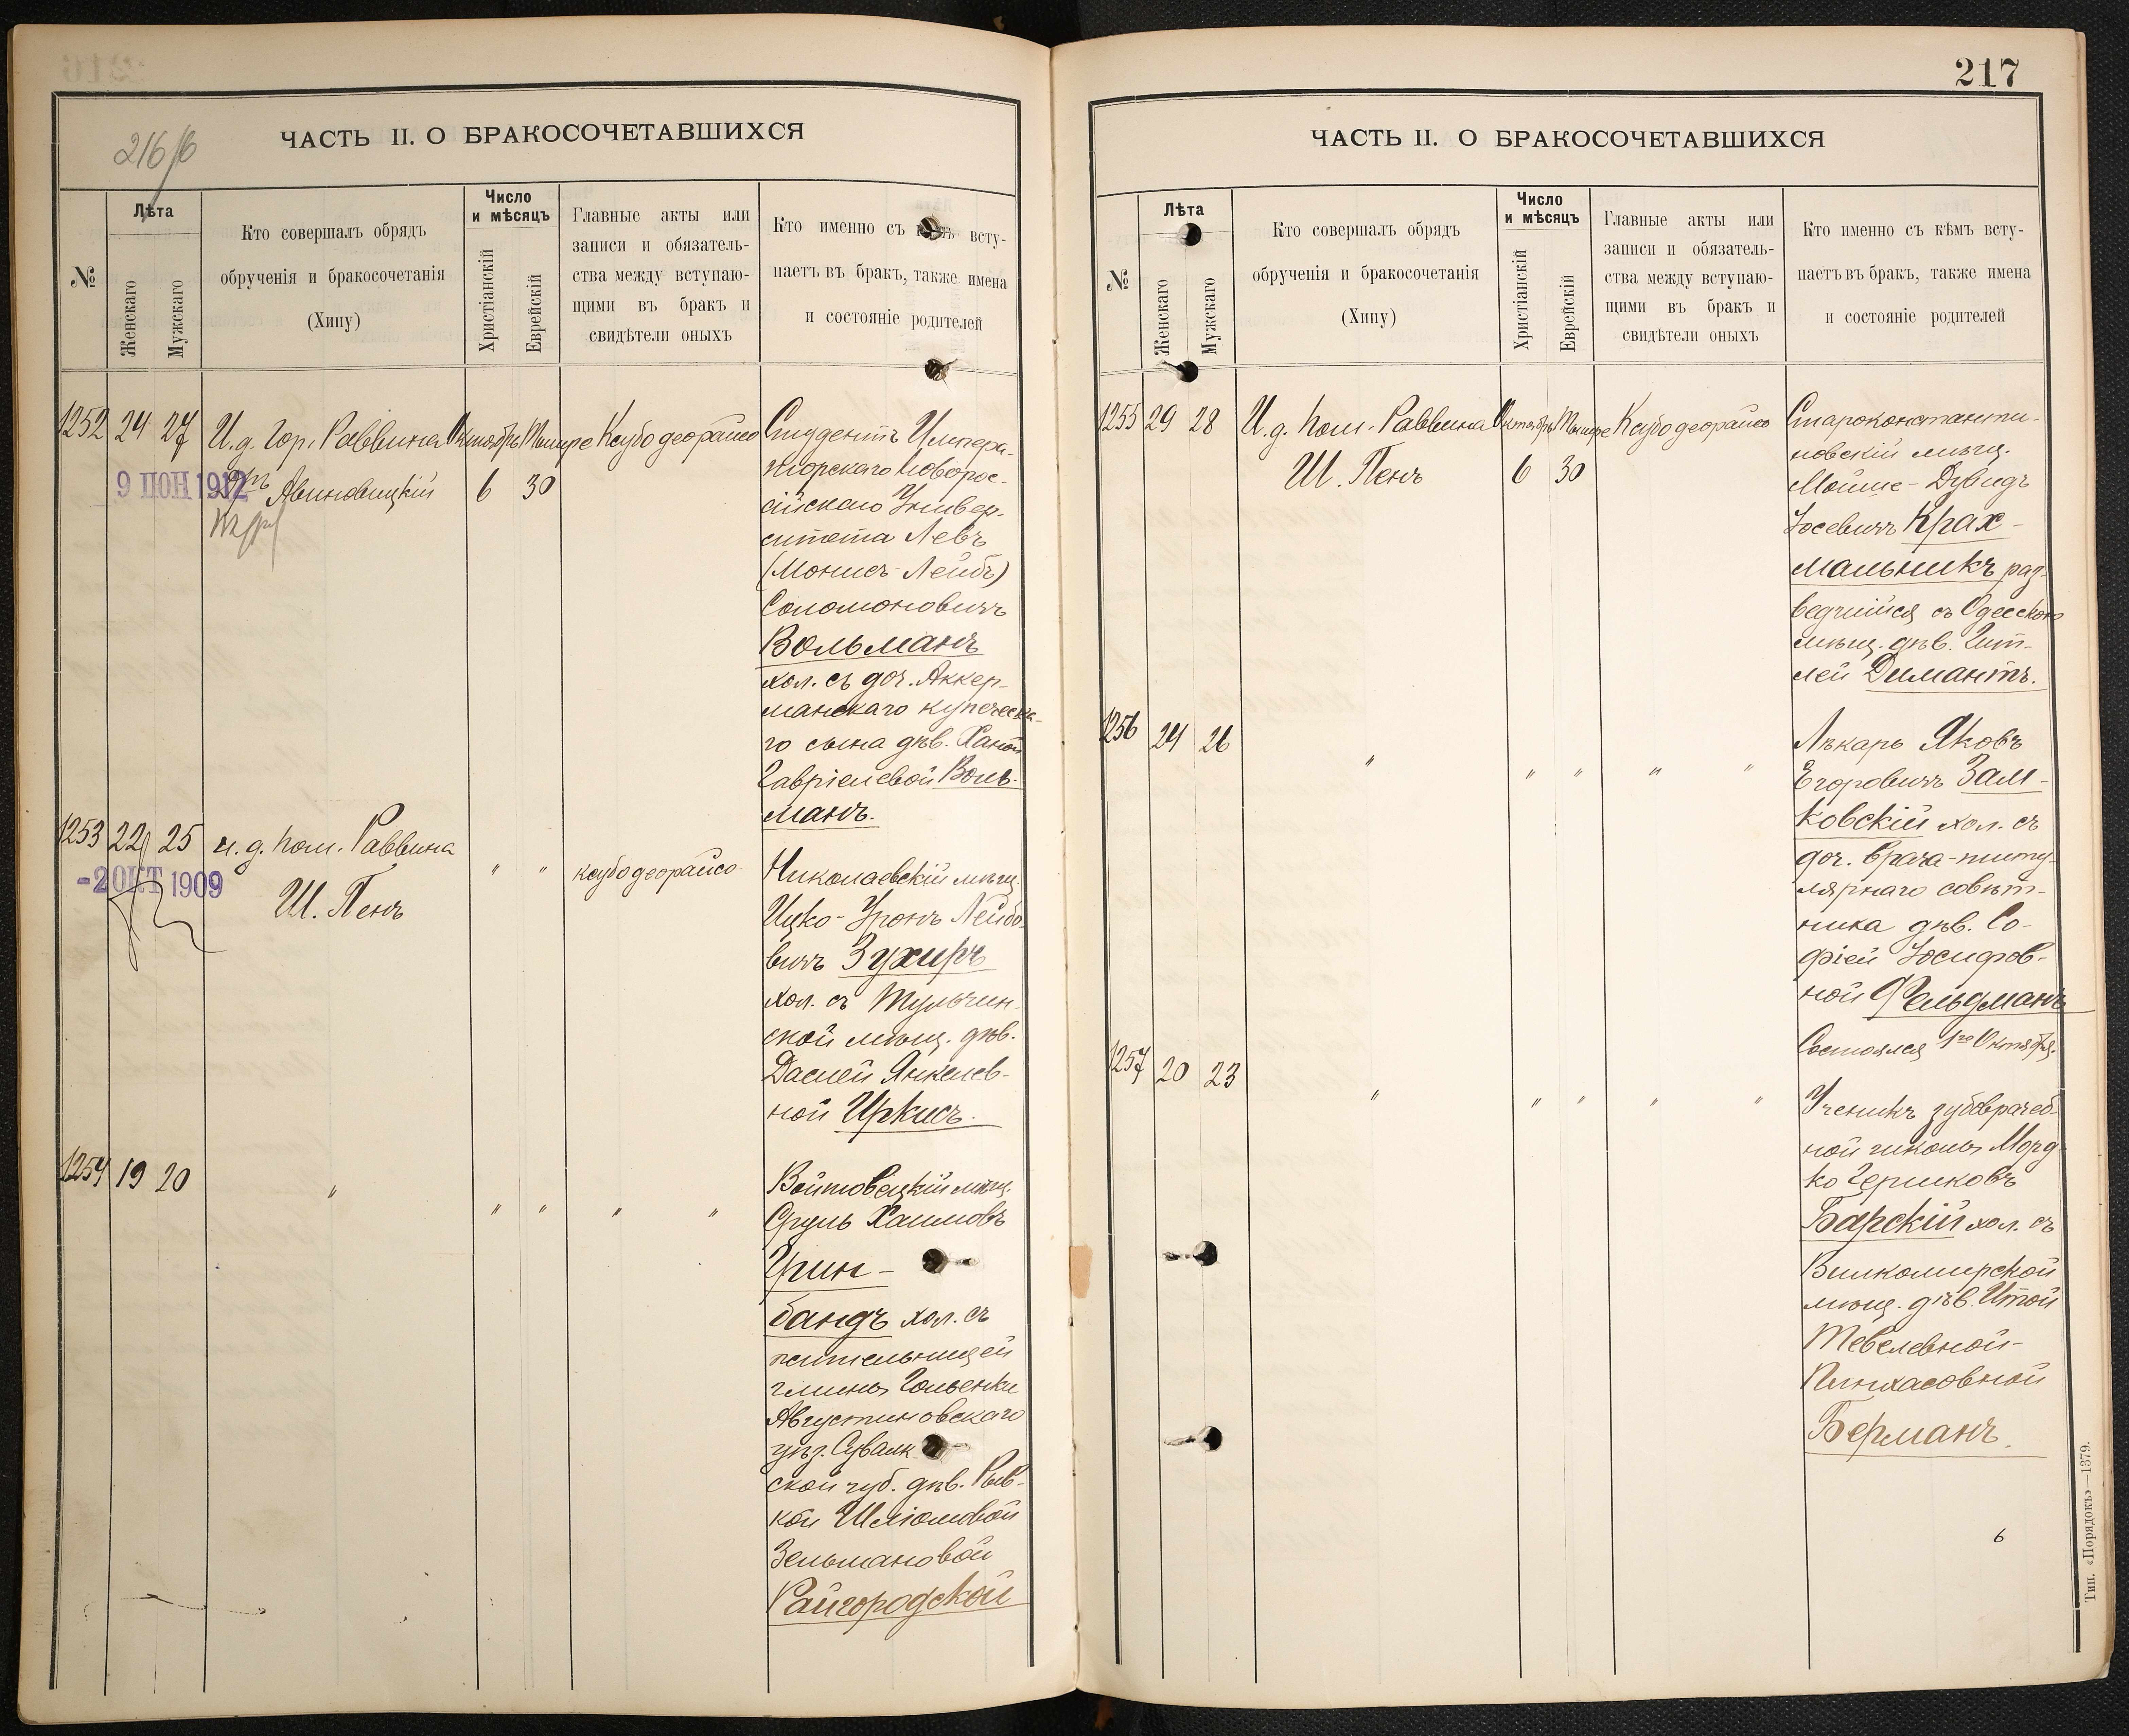 216/б
ЧАСТЬ II. О БРАКОСОЧЕТАВШИХСЯ
№
Лѣта
Женскаго
Мужскаго
Кто совершалъ обрядъ
обрученія и бракосочетанія
(Хипу)
Число
и мѣсяцъ
Христіанскій
Еврейскій
Главные акты или
записи и обязатель-
ства между вступаю-
щими въ бракъ и
свидѣтели оныхъ
Кто именно съ кѣмъ всту-
паетъ въ бракъ, также имена
и состояніе родителей
1252 24 27 И.д. Гор. Раввина Октябрь Тишре Ксубо деорайсо
9 ІЮН 1912
Авиновицкій 6 30
Студентъ Импера-
торскаго Новорос-
сійскаго Универ-
ситета Левъ
(Монисъ-Лейбъ)
Соломоновичъ
Вольманъ
хол. съ доч. Аккер-
манскаго купеческа-
го сына дѣв. Ханой
Гавріелевой Воль-
манъ.
1253 22 25 и.д. пом. Раввина " " ксубо деорайсо
-2 ОКТ 1909
Ш. Пенъ
Николаевскій мѣщ.
Ицко-Уронъ Лейбо-
вичъ Зухиръ
хол. съ Тульчин-
ской мѣщ. дѣв.
Дасией Янкелев-
ной Иркисъ.
1254 19 20 " " " " "
Войтовецкій мѣщ.
Сруль Хаимовъ
Грин-
бандъ хол. съ
жительницей
гмины Гольенки
Августиновскаго
уѣз. Сувалк-
ской губ. дѣв. Рыв-
кой Шліомовой
Зельмановой
Райгородской
217
ЧАСТЬ II. О БРАКОСОЧЕТАВШИХСЯ
№
Лѣта
Женскаго
Мужскаго
Кто совершалъ обрядъ
обрученія и бракосочетанія
(Хипу)
Число
и мѣсяцъ
Христіанскій
Еврейскій
Главные акты или
записи и обязатель-
ства между вступаю-
щими въ бракъ и
свидѣтели оныхъ
Кто именно съ кѣмъ всту-
паетъ въ бракъ, также имена
и состояніе родителей
1255 29 28 И.д. пом. Раввина Октябрь Тишре Ксубо деорайсо
Ш. Пенъ 6 30
Староконстанти-
новскій мѣщ.
Мойше-Дувидъ
Іосевичъ Крах-
мальникъ раз-
ведшійся съ Одесской
мѣщ. дѣв. Гит-
лей Димантъ.
1256 24 26 " " " " "
Лѣкарь Яковъ
Егоровичъ Зам-
ковскій хол. съ
доч. врача-титу-
лярнаго совѣт-
ника дѣв. Со-
фіей Іосифов-
ной Фельдманъ
Состоялся 1го Октября.
1257 20 23 " " " " "
Ученикъ зубоврачеб-
ной школы Морд-
ко Гершковъ
Барскій хол. съ
Вилкомирской
мѣщ. дѣв. Итой
Тевелевной-
Пинхасовной
Берманъ.
6
Тип. «Порядокъ»—1379.